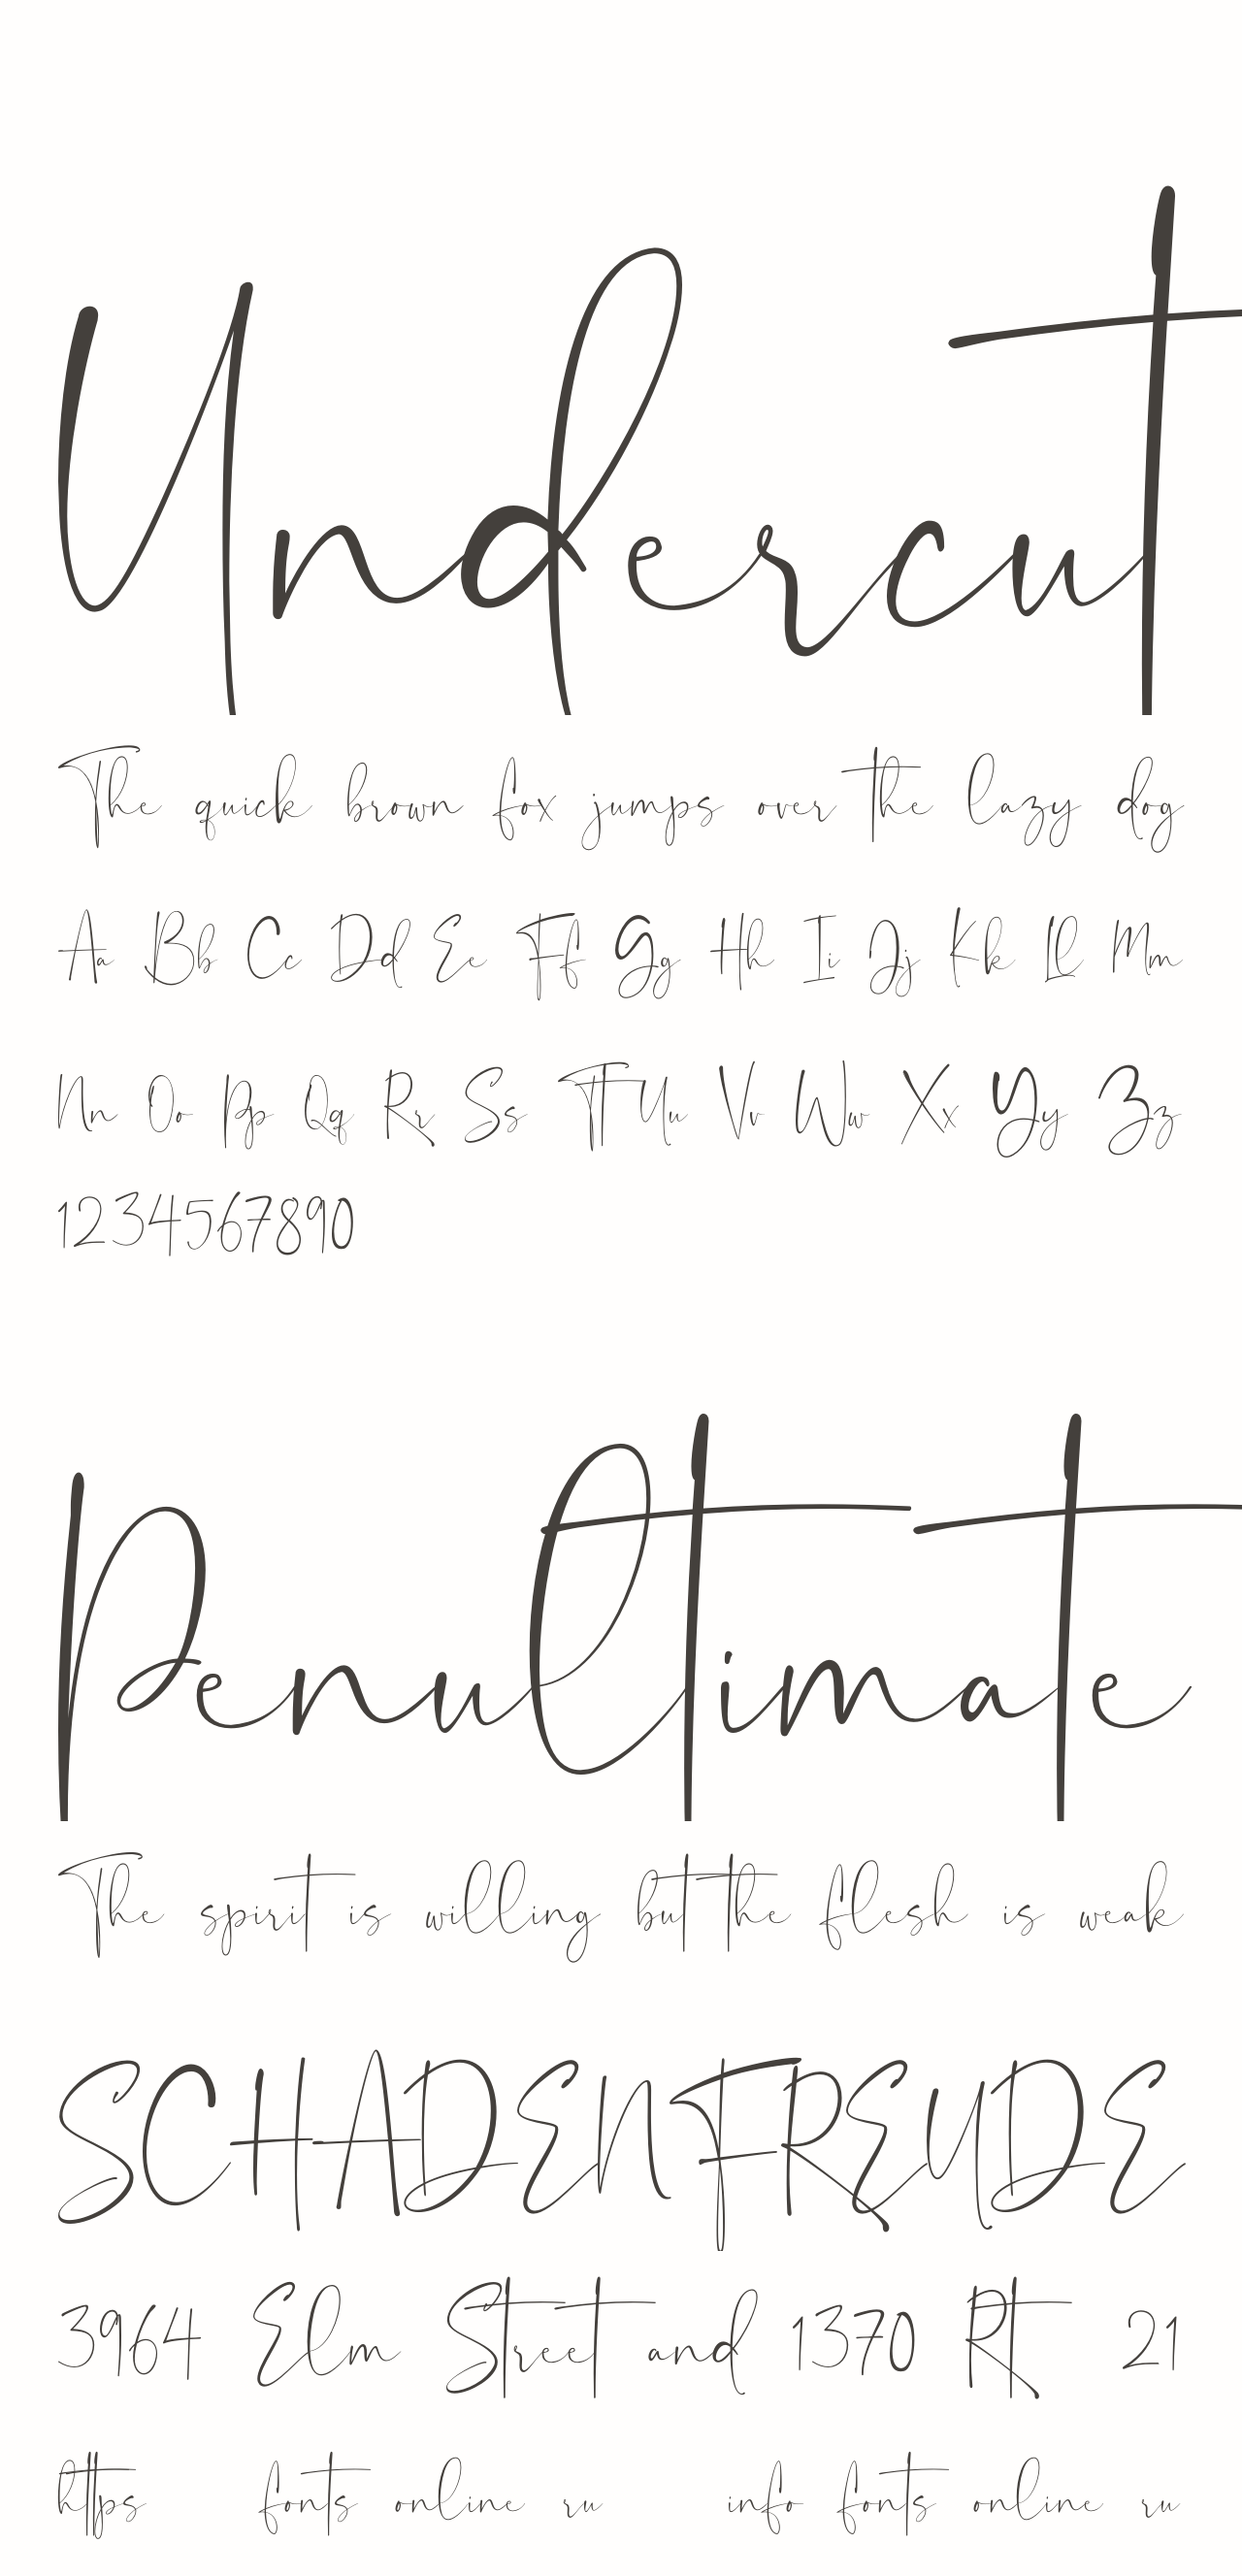 Undercut
The quick brown fox jumps over the lazy dog
Aa Bb Cc Dd Ee Ff Gg Hh Ii Jj Kk Ll Mm
Nn Oo Pp Qq Rr Ss Tt Uu Vv Ww Xx Yy Zz
1234567890
Penultimate
The spirit is willing but the flesh is weak
SCHADENFREUDE
3964 Elm Street and 1370 Rt 21
https fonts online ru info fonts online ru